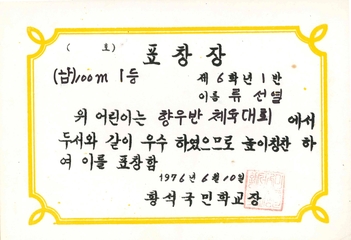 ( 호)
표창장
(남)100m 1등
제6학년1반
이름 류선열
위 어린이는 향우반 체육대회 에서
두서와 같이 우수 하였으므로 높이칭찬 하
여 이를 표창함
1976년 6월 10일
황석국민학교장